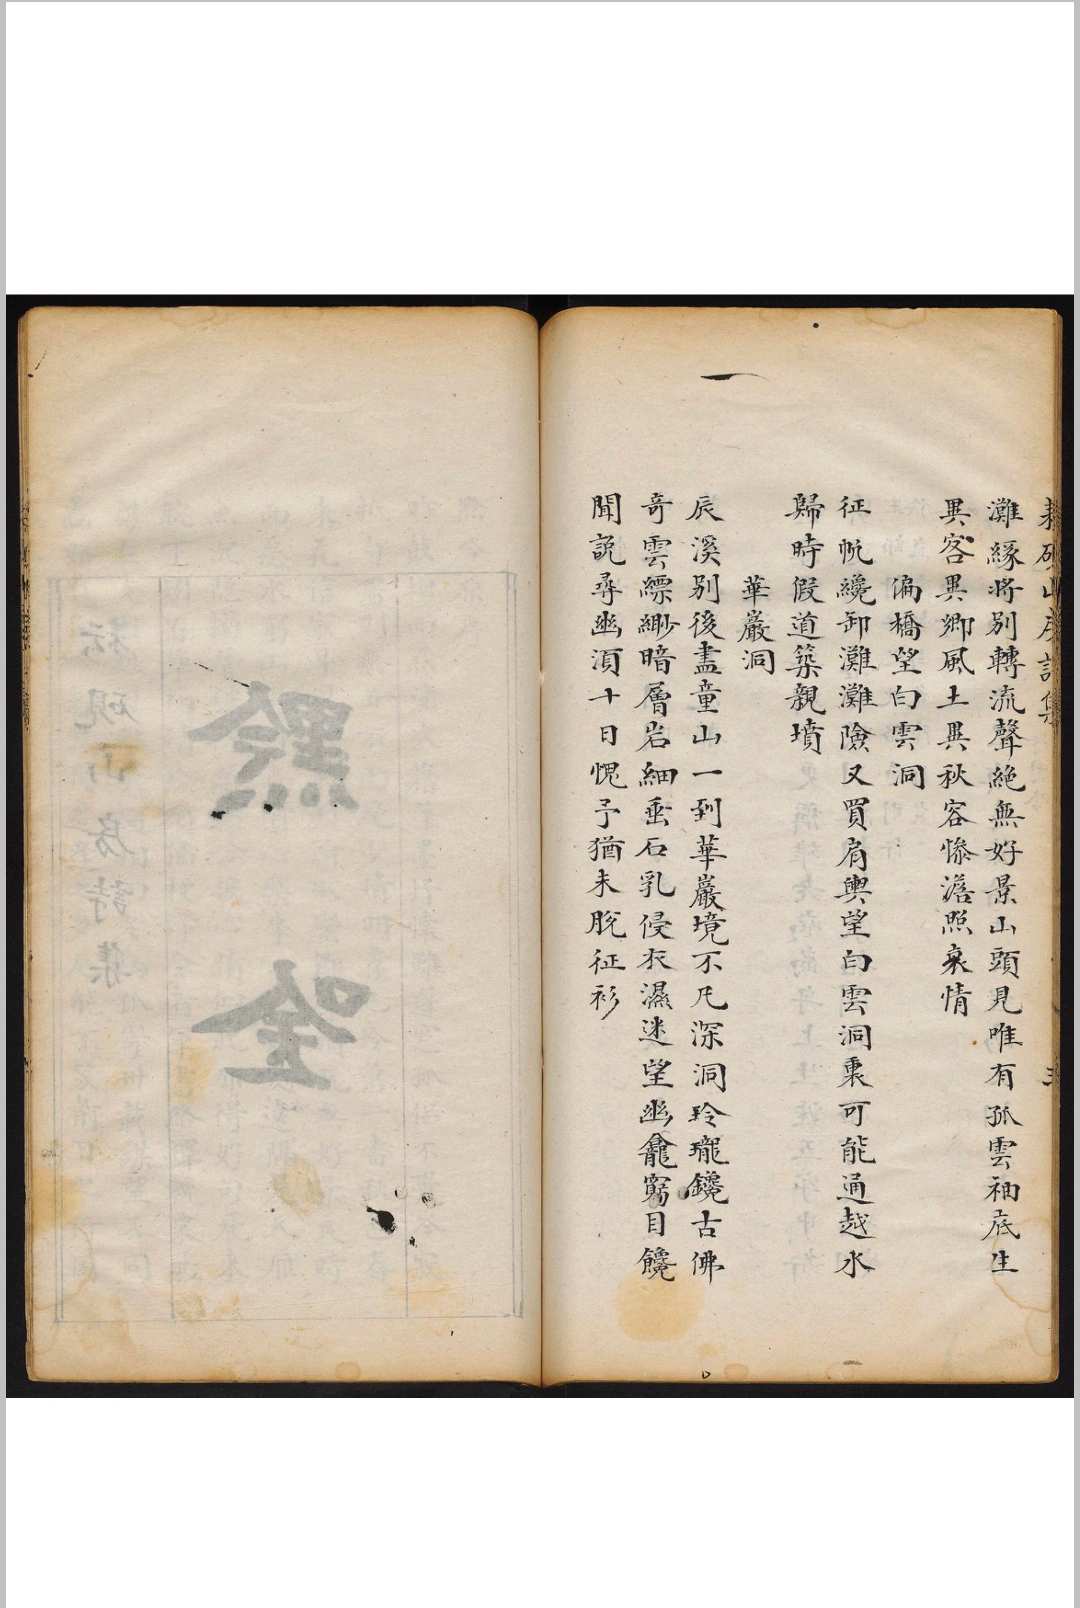 耘硯山房詩集
灘緣將別轉流聲絕無好景山頭見唯有孤雲袖底生
異客異鄉風土異秋容慘澹照衰情
偏橋望白雲洞
征帆纔卸灘灘險又買肩輿望白雲洞裏可能通越水
歸時假道築親墳
華巖洞
辰溪別後盡童山一到華巖境不凡深洞玲瓏鑱古佛
奇雲縹緲暗層岩細垂石乳侵衣濕迷望幽龕窮目饞
聞說尋幽須十日愧予猶未脫征衫
黔
吟
耘硯山房詩集